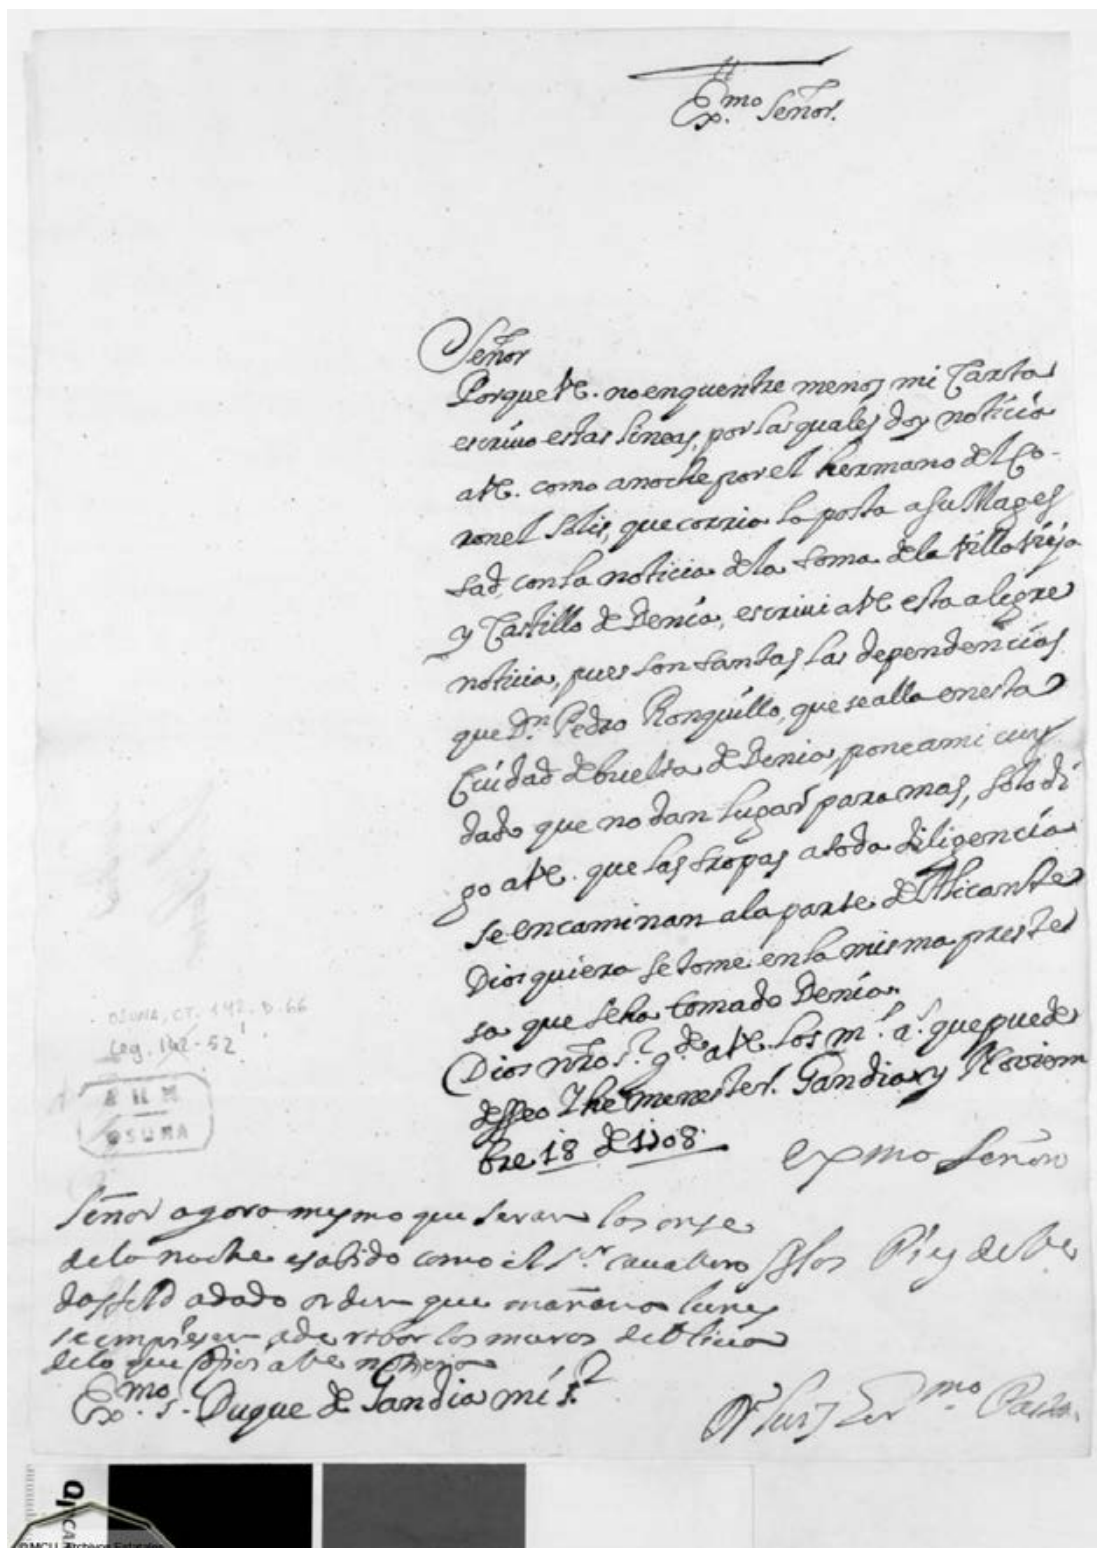 Exmo Señor.
Señor
Porque VE. no enquentre menos mi Carta
escrivo estas lineas, por las quales doy noticia
a VE. como anoche por el hermano del Co-
ronel Solis, que corrio la posta a Su Mages
tad, con la noticia de la toma de la Villa Vieja
y Castillo de Denia, escrivi a VE esta alegre
noticia, pues son tantas las dependencias
que Dn Pedro Ronquillo, que se alla en esta
Ciudad de buelta de Denia, pone a mi cuy
dado que no dan lugar para mas, solo di
go a VE. que las tropas a toda diligencia
se encaminan a la parte de Alicante
Dios quiera se tome en la misma preste
sa que se ha tomado Denia.
Dios nro Sr gde a VE. los ms as que puede
desseo he menester. Gandia y Noviem
bre 18 de 1708.
Exmo Señor
Señor agora mesmo que seran las onse
de la noche e sabido como el Sr. cavallero
dasfeld a dado orden que mañana lunes
se empiesen a derribar los muros de Oliva
de lo que doi a VE noticia
A los Pies de VE
Exmo S. Duque de Gandia mi Sr
Dr Luis
OSUNA, CT. 142. D. 66
Leg. 142-52
AHN
OSUNA
©MCU. Archivos Estatales